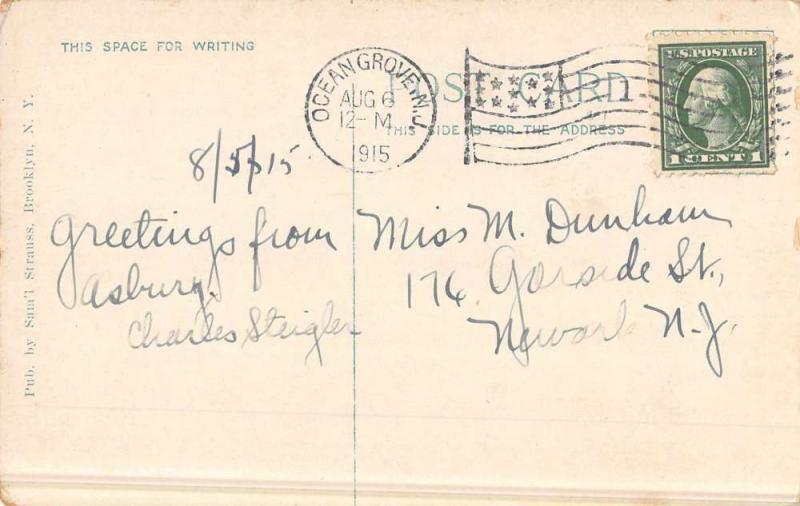 THIS SPACE FOR WRITING
OCEAN GROVE, N.J.
AUG 6
12-M
1915
POST CARD
THIS SIDE IS FOR THE ADDRESS
U.S. POSTAGE
1 CENT 1
8/5/15
Greetings from
Asbury.
Charles Steigler
Miss M. Dunham
174 Garside St.,
Newark N.J.
Pub. by Sam'l Strauss, Brooklyn, N. Y.